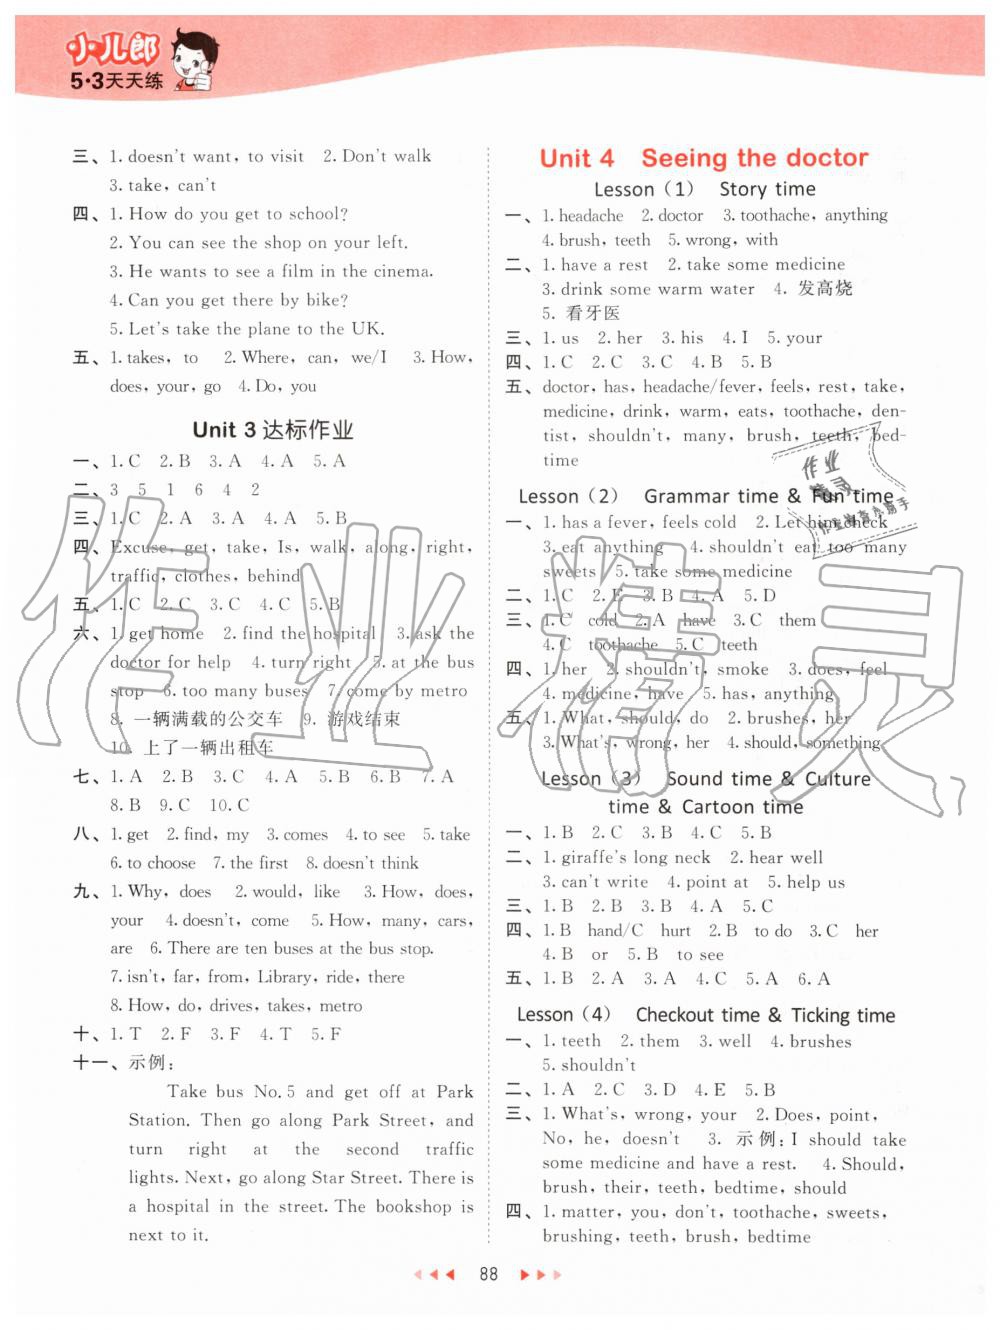 小儿郎
5·3天天练
三、1. doesn't want, to visit 2. Don't walk
3. take, can't
四、1. How do you get to school?
2. You can see the shop on your left.
3. He wants to see a film in the cinema.
4. Can you get there by bike?
5. Let's take the plane to the UK.
五、1. takes, to 2. Where, can, we/I 3. How,
does, your, go 4. Do, you
Unit 3 达标作业
一、1. C 2. B 3. A 4. A 5. A
二、3 5 1 6 4 2
三、1. C 2. A 3. A 4. A 5. B
四、Excuse, get, take, Is, walk, along, right,
traffic, clothes, behind
五、1. C 2. C 3. C 4. C 5. B
六、1. get home 2. find the hospital 3. ask the
doctor for help 4. turn right 5. at the bus
stop 6. too many buses 7. come by metro
8. 一辆满载的公交车 9. 游戏结束
10. 上了一辆出租车
七、1. A 2. B 3. C 4. A 5. B 6. B 7. A
8. B 9. C 10. C
八、1. get 2. find, my 3. comes 4. to see 5. take
6. to choose 7. the first 8. doesn't think
九、1. Why, does 2. would, like 3. How, does,
your 4. doesn't, come 5. How, many, cars,
are 6. There are ten buses at the bus stop.
7. isn't, far, from, Library, ride, there
8. How, do, drives, takes, metro
十、1. T 2. F 3. F 4. T 5. F
十一、示例:
Take bus No. 5 and get off at Park
Station. Then go along Park Street, and
turn right at the second traffic
lights. Next, go along Star Street. There is
a hospital in the street. The bookshop is
next to it.
Unit 4 Seeing the doctor
Lesson (1) Story time
一、1. headache 2. doctor 3. toothache, anything
4. brush, teeth 5. wrong, with
二、1. have a rest 2. take some medicine
3. drink some warm water 4. 发高烧
5. 看牙医
三、1. us 2. her 3. his 4. I 5. your
四、1. C 2. C 3. C 4. B 5. B
五、doctor, has, headache/fever, feels, rest, take,
medicine, drink, warm, eats, toothache, den-
tist, shouldn't, many, brush, teeth, bed-
time
Lesson (2) Grammar time & Fun time
一、1. has a fever, feels cold 2. Let him check
3. eat anything 4. shouldn't eat too many
sweets 5. take some medicine
二、1. C 2. E 3. B 4. A 5. D
三、1. C cold 2. A have 3. C them
4. C toothache 5. C teeth
四、1. her 2. shouldn't, smoke 3. does, feel
4. medicine, have 5. has, anything
五、1. What, should, do 2. brushes, her
3. What's, wrong, her 4. should, something
Lesson (3) Sound time & Culture
time & Cartoon time
一、1. B 2. C 3. B 4. C 5. B
二、1. giraffe's long neck 2. hear well
3. can't write 4. point at 5. help us
三、1. B 2. B 3. B 4. A 5. C
四、1. B hand/C hurt 2. B to do 3. C her
4. B or 5. B to see
五、1. B 2. A 3. A 4. C 5. A 6. A
Lesson (4) Checkout time & Ticking time
一、1. teeth 2. them 3. well 4. brushes
5. shouldn't
二、1. A 2. C 3. D 4. E 5. B
三、1. What's, wrong, your 2. Does, point,
No, he, doesn't 3. 示例: I should take
some medicine and have a rest. 4. Should,
brush, their, teeth, bedtime, should
四、1. matter, you, don't, toothache, sweets,
brushing, teeth, brush, bedtime
88
作业精灵